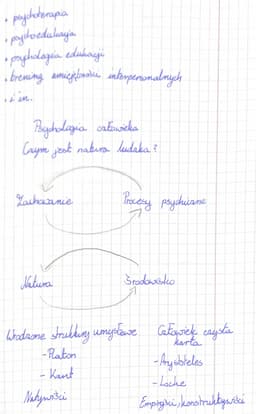 • psychoterapia
• psychoedukacja
• psychologia edukacji
• trening umiejętności interpersonalnych
• i in.
Psychologia człowieka
Czym jest natura ludzka?
Zachowanie Procesy psychiczne
Natura Środowisko
Wrodzone struktury umysłowe Człowiek czysta karta
- Platon - Arystoteles
- Kant - Locke
Natywiści Empirycy/konstruktywiści